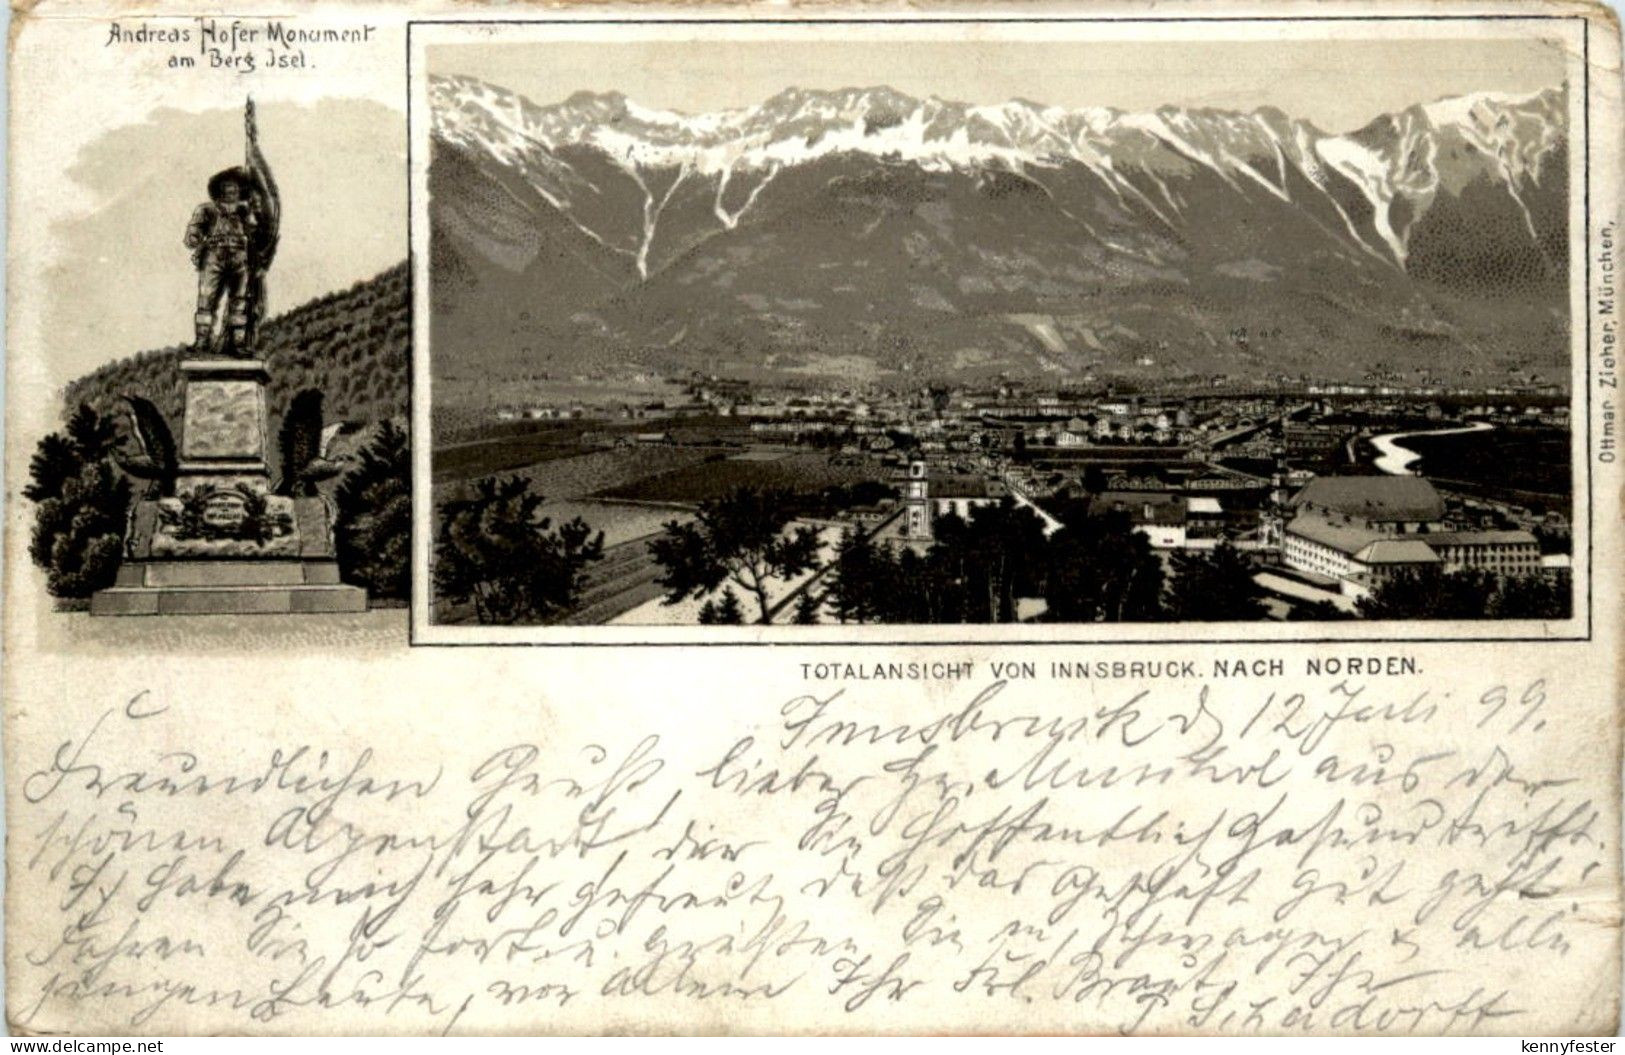 Andreas Hofer Monument
am Berg Isel.
Ottmar Zieher, München,
TOTALANSICHT VON INNSBRUCK. NACH NORDEN.
Innsbruck d 12 Juli 99.
Freundlichen Gruß, lieber Hr. aus der
schönen Alpenstadt, der Sie hoffentlich Gesund trifft.
Ich habe mich sehr gefreut, daß das Geschäft gut geht!
Fahren Sie so fort u. grüßen Sie m, Schwager & alle
jungen Leute, vor Allem Ihr Frl. Braut, Ihr
Schadorff
delcampe.net
kennyfester